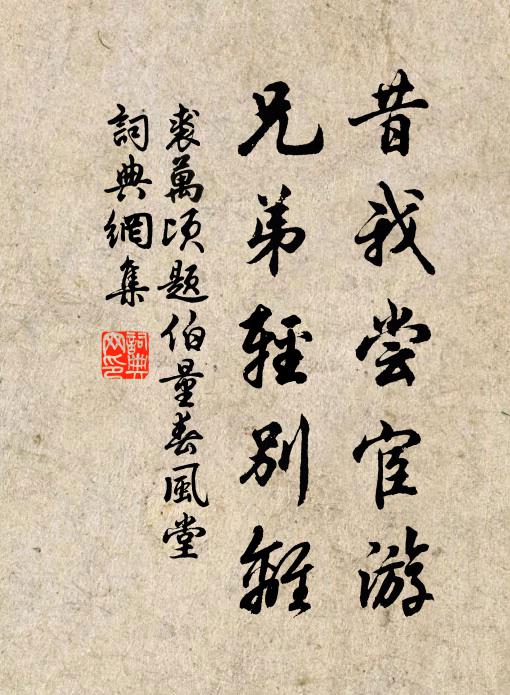 昔我尝宦游
兄弟輕別離
裘萬頃题伯量春風堂
詞典網集
詞典
网印